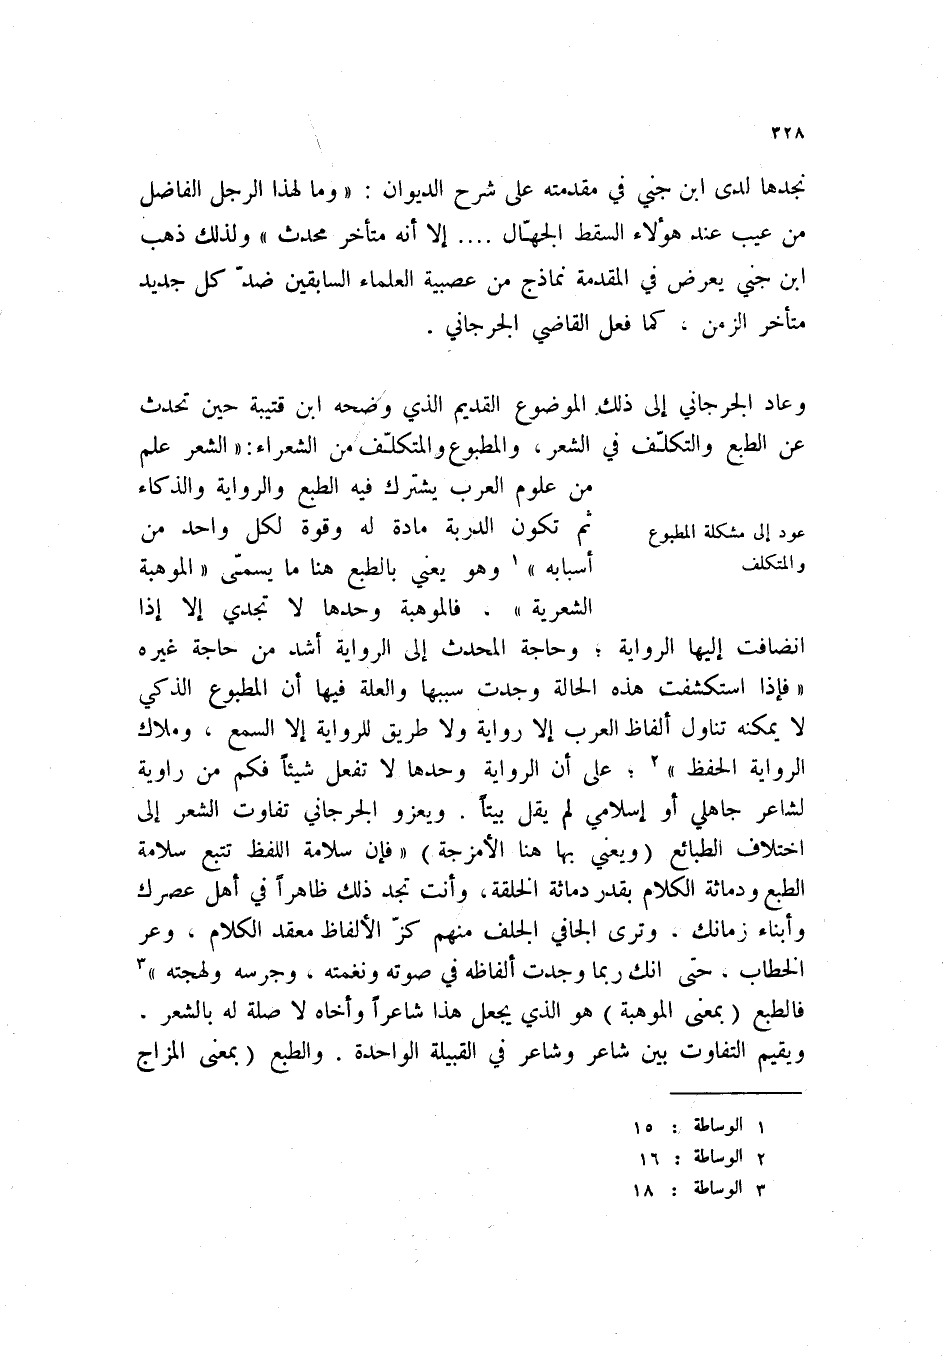 ٣٢٨
نجدها لدى ابن جني في مقدمته على شرح الديوان : « وما لهذا الرجل الفاضل
من عيب عند هؤلاء السقط الجهّال .... إلا أنه متأخر محدث » ولذلك ذهب
ابن جني يعرض في المقدمة نماذج من عصبية العلماء السابقين ضدّ كل جديد
متأخر الزمن ، كما فعل القاضي الجرجاني .
وعاد الجرجاني إلى ذلك الموضوع القديم الذي وضحه ابن قتيبة حين تحدث
عن الطبع والتكلّف في الشعر ، والمطبوع والمتكلّف من الشعراء : « الشعر علم
من علوم العرب يشترك فيه الطبع والرواية والذكاء
ثم تكون الدربة مادة له وقوة لكل واحد من
عود إلى مشكلة المطبوع
والمتكلف
أسبابه » ١ وهو يعني بالطبع هنا ما يسمّى « الموهبة
الشعرية » . فالموهبة وحدها لا تجدي إلا إذا
انضافت إليها الرواية ؛ وحاجة المحدث إلى الرواية أشد من حاجة غيره
« فإذا استكشفت هذه الحالة وجدت سببها والعلة فيها أن المطبوع الذكي
لا يمكنه تناول ألفاظ العرب إلا رواية ولا طريق للرواية إلا السمع ، وملاك
الرواية الحفظ » ٢ ؛ على أن الرواية وحدها لا تفعل شيئاً فكم من راوية
لشاعر جاهلي أو إسلامي لم يقل بيتاً . ويعزو الجرجاني تفاوت الشعر إلى
اختلاف الطبائع ( ويعني بها هنا الأمزجة ) « فإن سلامة اللفظ تتبع سلامة
الطبع ودماثة الكلام بقدر دماثة الخلقة ، وأنت تجد ذلك ظاهراً في أهل عصرك
وأبناء زمانك . وترى الجافي الجلف منهم كزّ الألفاظ معقد الكلام ، وعر
الخطاب ، حتّى انك ربما وجدت ألفاظه في صوته ونغمته ، وجرسه ولهجته » ٣
فالطبع ( بمعنى الموهبة ) هو الذي يجعل هذا شاعراً وأخاه لا صلة له بالشعر .
ويقيم التفاوت بين شاعر وشاعر في القبيلة الواحدة . والطبع ( بمعنى المزاج
١ الوساطة : ١٥
٢ الوساطة : ١٦
٣ الوساطة : ١٨